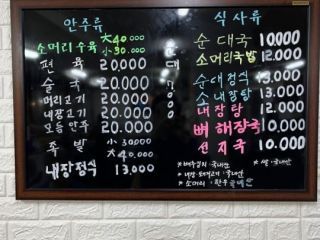 안주류
소머리수육 大 40.000
小 30.000
편육 20.000
술국 20.000
머리고기 20.000
내장고기 20.000
모듬안주 20.000
족발 小 30.000
大 40.000
내장정식 13.000
순대
식사류
순대국 10.000
소머리국밥 12.000
순대정식 13.000
소내장탕 13.000
내장탕 12.000
뼈해장국 10.000
선지국 10.000
* 배추김치: 국내산
* 쌀: 국내산
* 내장·돼지고기: 국내산
* 소머리: